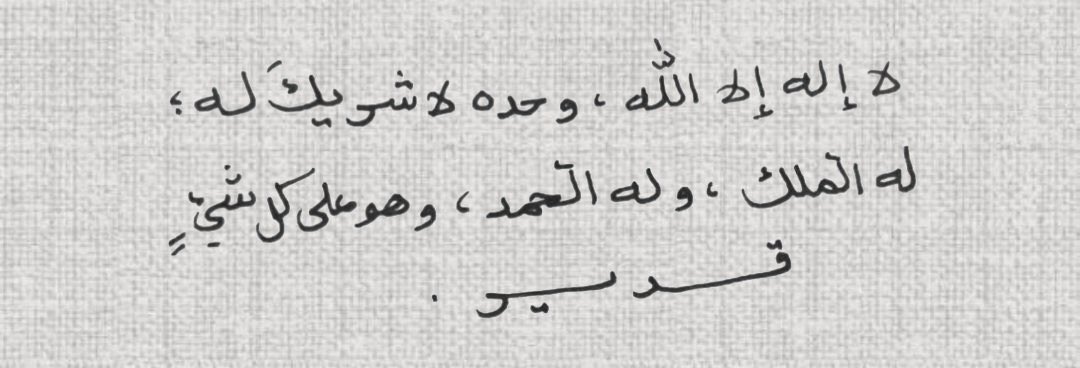 لا إله إلا الله ، وحده لا شريكَ له ؛
له الملك ، وله الحمد ، وهو على كل شيءٍ
قدير .